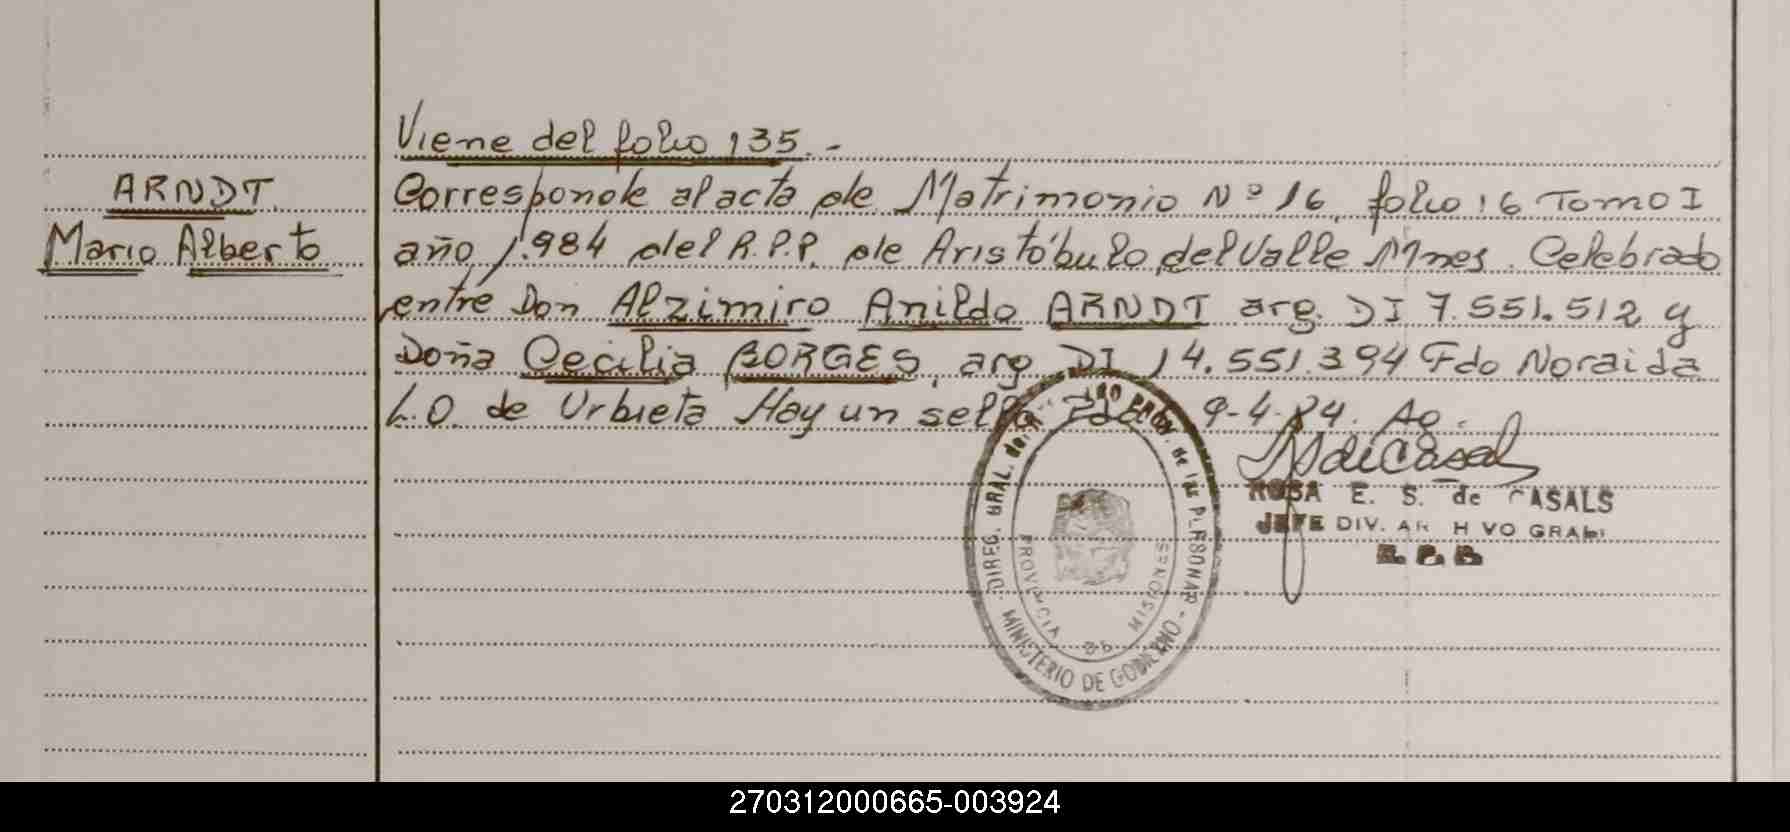 Viene del folio 135.-
ARNDT
Mario Alberto
Corresponde al acta de Matrimonio Nº 16, folio 16 Tomo I
año 1.984 del R.P.P. de Aristóbulo del Valle Mnes. Celebrado
entre Don Alzimiro Anildo ARNDT arg. DI 7.551.512 y
Doña Cecilia BORGES, arg DI 14.551.394 Fdo Noraida
L.O. de Urbieta Hay un sello 9-4-84. Ag.
ROSA E. S. de CASALS
JEFE DIV. ARCHIVO GRAL
DIREG. GRAL. del PROV. de las PERSONAS
MINISTERIO DE GOBIERNO
PROVINCIA DE MISIONES
270312000665-003924